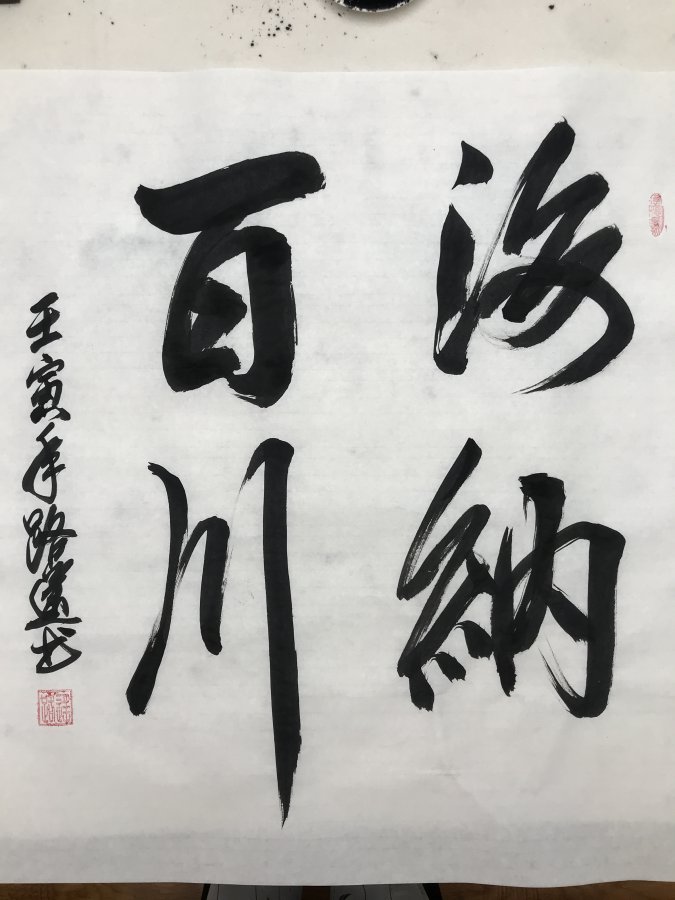 海納
百川
壬寅年路遠书